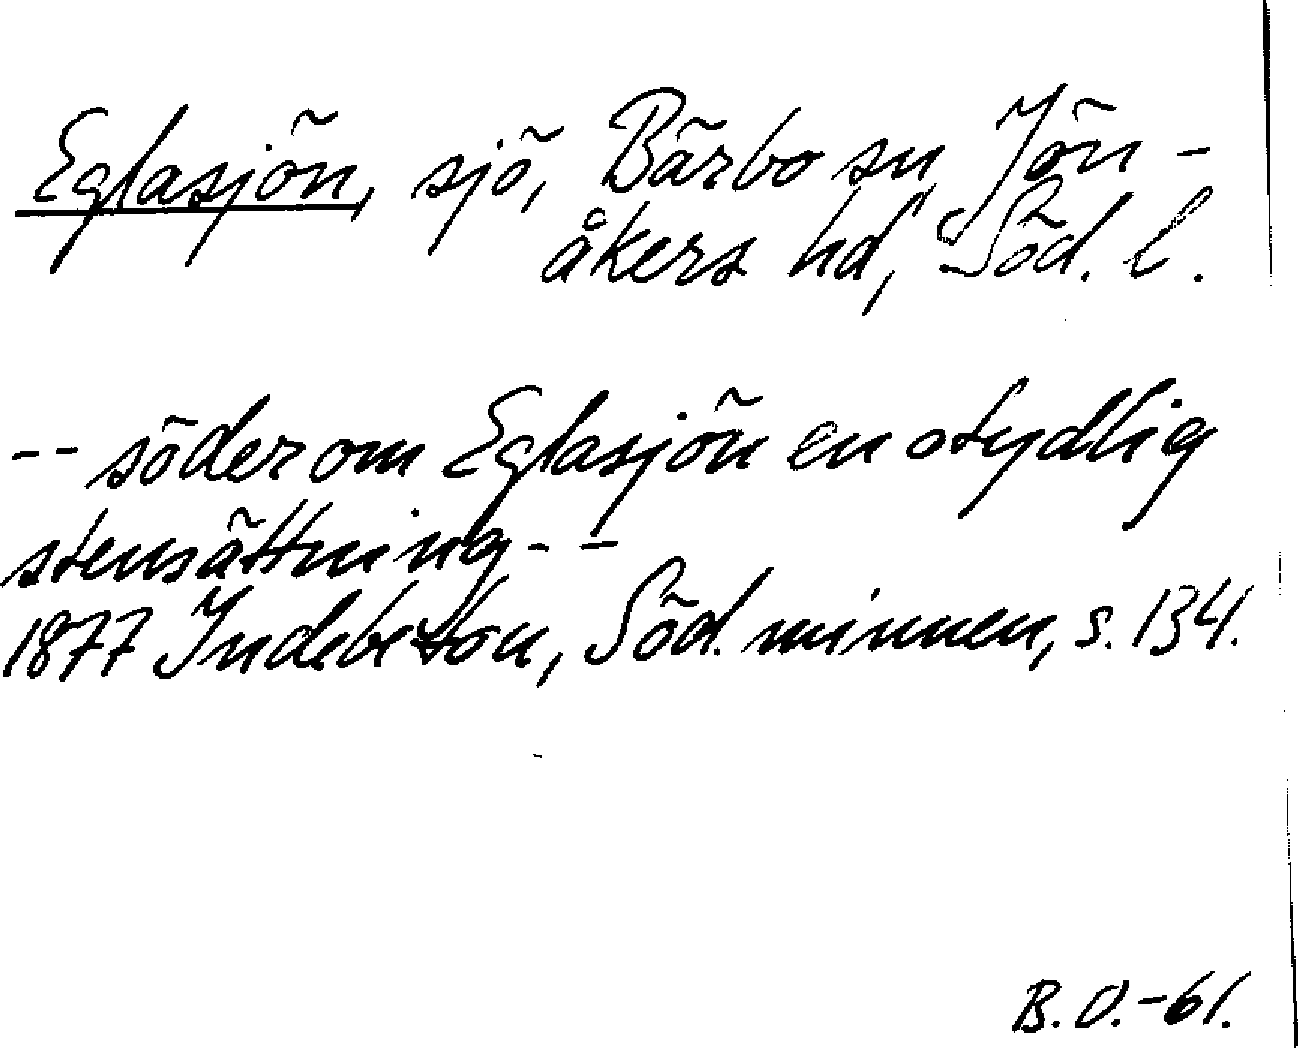 Eglasjön, sjö, Bärbo sn, Jön-
åkers hd, Söd. l.
-- söder om Eglasjön en otydlig
stensättning - -
1877 Indebetou, Söd. minnen, s. 134.
B.O.-61.